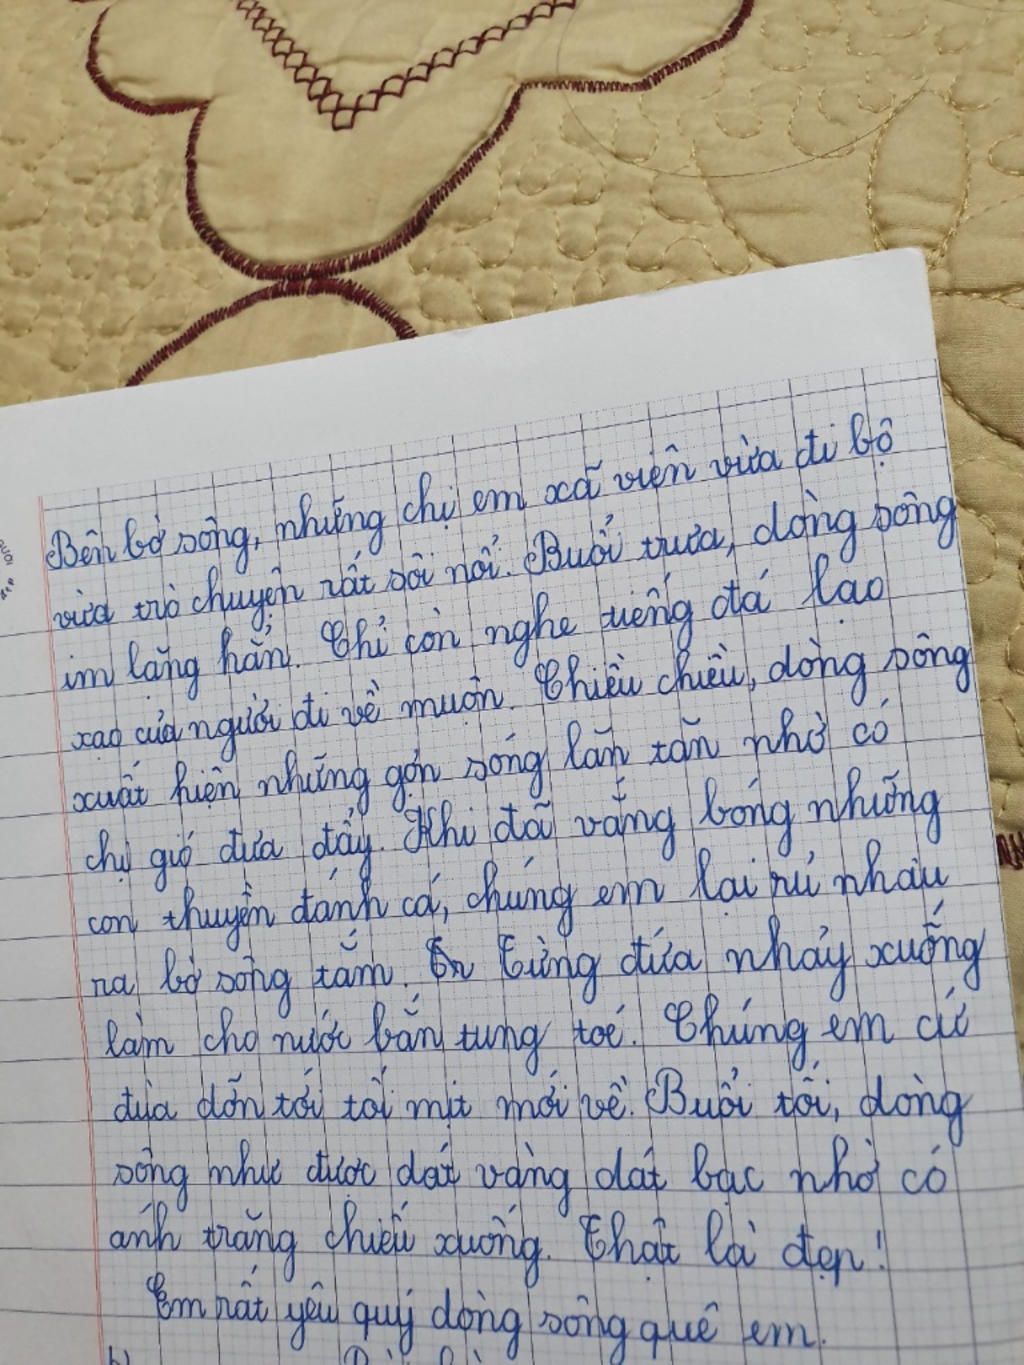 Bên bờ sông, những chị em xã viên vừa đi bộ
vừa trò chuyện rất sôi nổi. Buổi trưa, dòng sông
im lặng hẳn. Chỉ còn nghe tiếng đá lạo
xạo của người đi về muộn. Chiều chiều, dòng sông
xuất hiện những gợn sóng lăn tăn nhờ có
chị gió đưa đẩy. Khi đã vắng bóng những
con thuyền đánh cá, chúng em lại rủ nhau
ra bờ sông tắm. Từng đứa nhảy xuống
làm cho nước bắn tung toé. Chúng em cứ
đùa dỡn tới tối mịt mới về. Buổi tối, dòng
sông như được dát vàng dát bạc nhờ có
ánh trăng chiếu xuống. Thật là đẹp!
Em rất yêu quý dòng sông quê em.